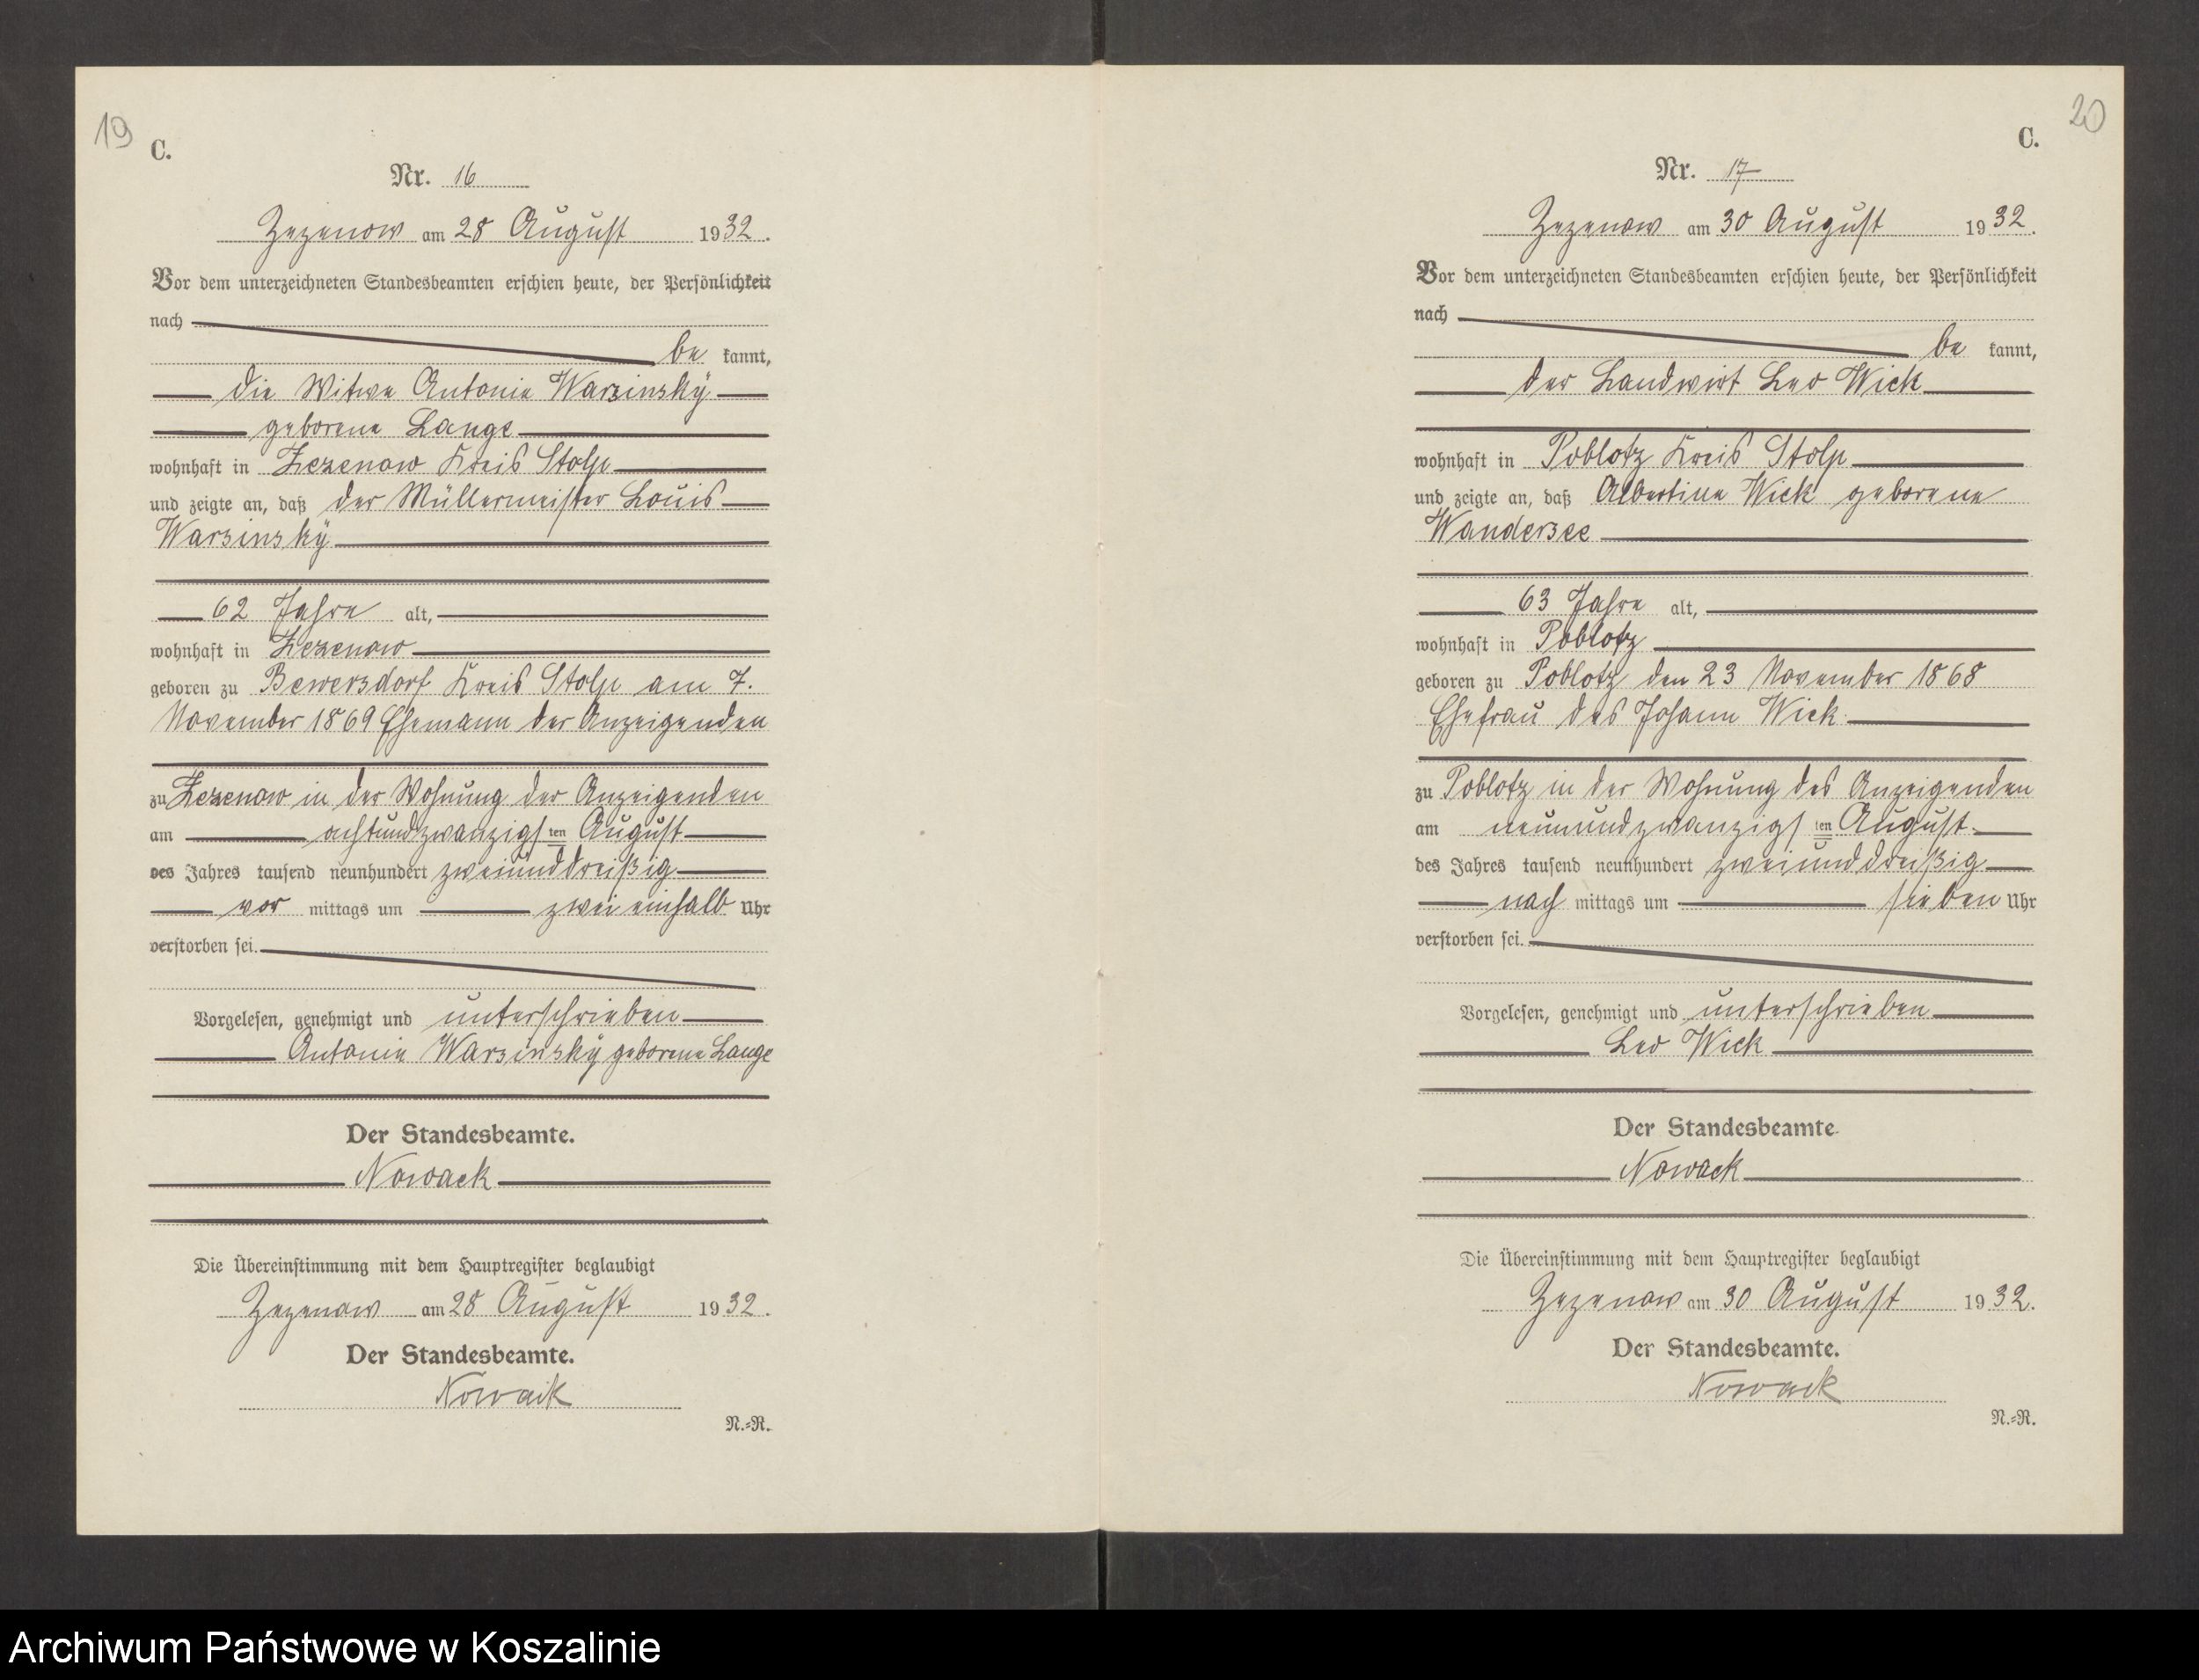 19
C.
Nr. 16
Zezenow am 28 August 1932.
Vor dem unterzeichneten Standesbeamten erschien heute, der Persönlichkeit
nach
be kannt,
die Witwe Antonie Warsinsky
geborene Lange
wohnhaft in Zezenow Kreis Stolp
und zeigte an, daß der Müllermeister Louis
Warsinsky
62 Jahre alt,
wohnhaft in Zezenow
geboren zu Bewersdorf Kreis Stolp am 7.
November 1869 Ehemann der Anzeigenden
zu Zezenow in der Wohnung der Anzeigenden
am achtundzwanzigsten August
des Jahres tausend neunhundert zweiunddreißig
vor mittags um zwei einhalb Uhr
verstorben sei.
Vorgelesen, genehmigt und unterschrieben
Antonie Warsinsky geborene Lange
Der Standesbeamte.
Nowack
Die Übereinstimmung mit dem Hauptregister beglaubigt
Zezenow am 28 August 1932.
Der Standesbeamte.
Nowack
N.=R.
20
C.
Nr. 17
Zezenow am 30 August 1932.
Vor dem unterzeichneten Standesbeamten erschien heute, der Persönlichkeit
nach
be kannt,
der Landwirt Leo Wick
wohnhaft in Poblotz Kreis Stolp
und zeigte an, daß Albertine Wick geborene
Wandersee
63 Jahre alt,
wohnhaft in Poblotz
geboren zu Poblotz den 23 November 1868
Ehefrau des Johann Wick
zu Poblotz in der Wohnung des Anzeigenden
am neunundzwanzigsten August
des Jahres tausend neunhundert zweiunddreißig
nach mittags um sieben Uhr
verstorben sei.
Vorgelesen, genehmigt und unterschrieben
Leo Wick
Der Standesbeamte.
Nowack
Die Übereinstimmung mit dem Hauptregister beglaubigt
Zezenow am 30 August 1932.
Der Standesbeamte.
Nowack
N.=R.
Archiwum Państwowe w Koszalinie